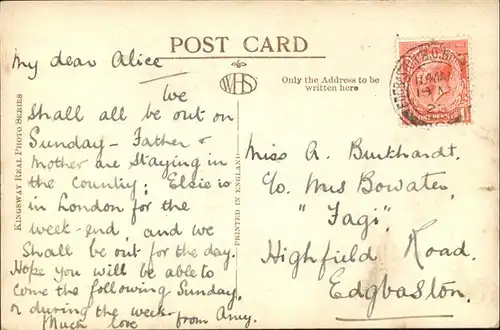 POST CARD
My dear Alice
We
shall all be out on
Sunday - Father &
Mother are staying in
the country; Elsie is
in London for the
week-end, and we
shall be out for the day.
Hope you will be able to
come the following Sunday,
or during the week.
Much love from Amy.
KINGSWAY REAL PHOTO SERIES
WHS
PRINTED IN ENGLAND
Only the Address to be
written here
Miss A. Burkhardt.
c/o Mrs Bowater,
"Fagi",
Highfield Road.
Edgbaston.